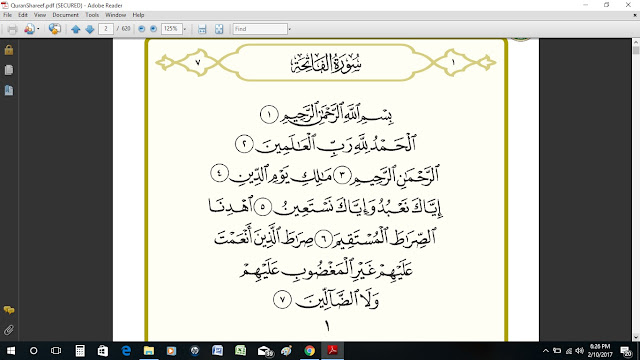 QuranShareef.pdf (SECURED) - Adobe Reader
File Edit View Document Tools Window Help
2 / 620 125% Find
٧ سُورَةُ الْفَاتِحَةِ ١
بِسْمِ اللَّهِ الرَّحْمَٰنِ الرَّحِيمِ ١
الْحَمْدُ لِلَّهِ رَبِّ الْعَالَمِينَ ٢
الرَّحْمَٰنِ الرَّحِيمِ ٣ مَالِكِ يَوْمِ الدِّينِ ٤
إِيَّاكَ نَعْبُدُ وَإِيَّاكَ نَسْتَعِينُ ٥ اهْدِنَا
الصِّرَاطَ الْمُسْتَقِيمَ ٦ صِرَاطَ الَّذِينَ أَنْعَمْتَ
عَلَيْهِمْ غَيْرِ الْمَغْضُوبِ عَلَيْهِمْ
وَلَا الضَّالِّينَ ٧
١
6:26 PM
2/10/2017